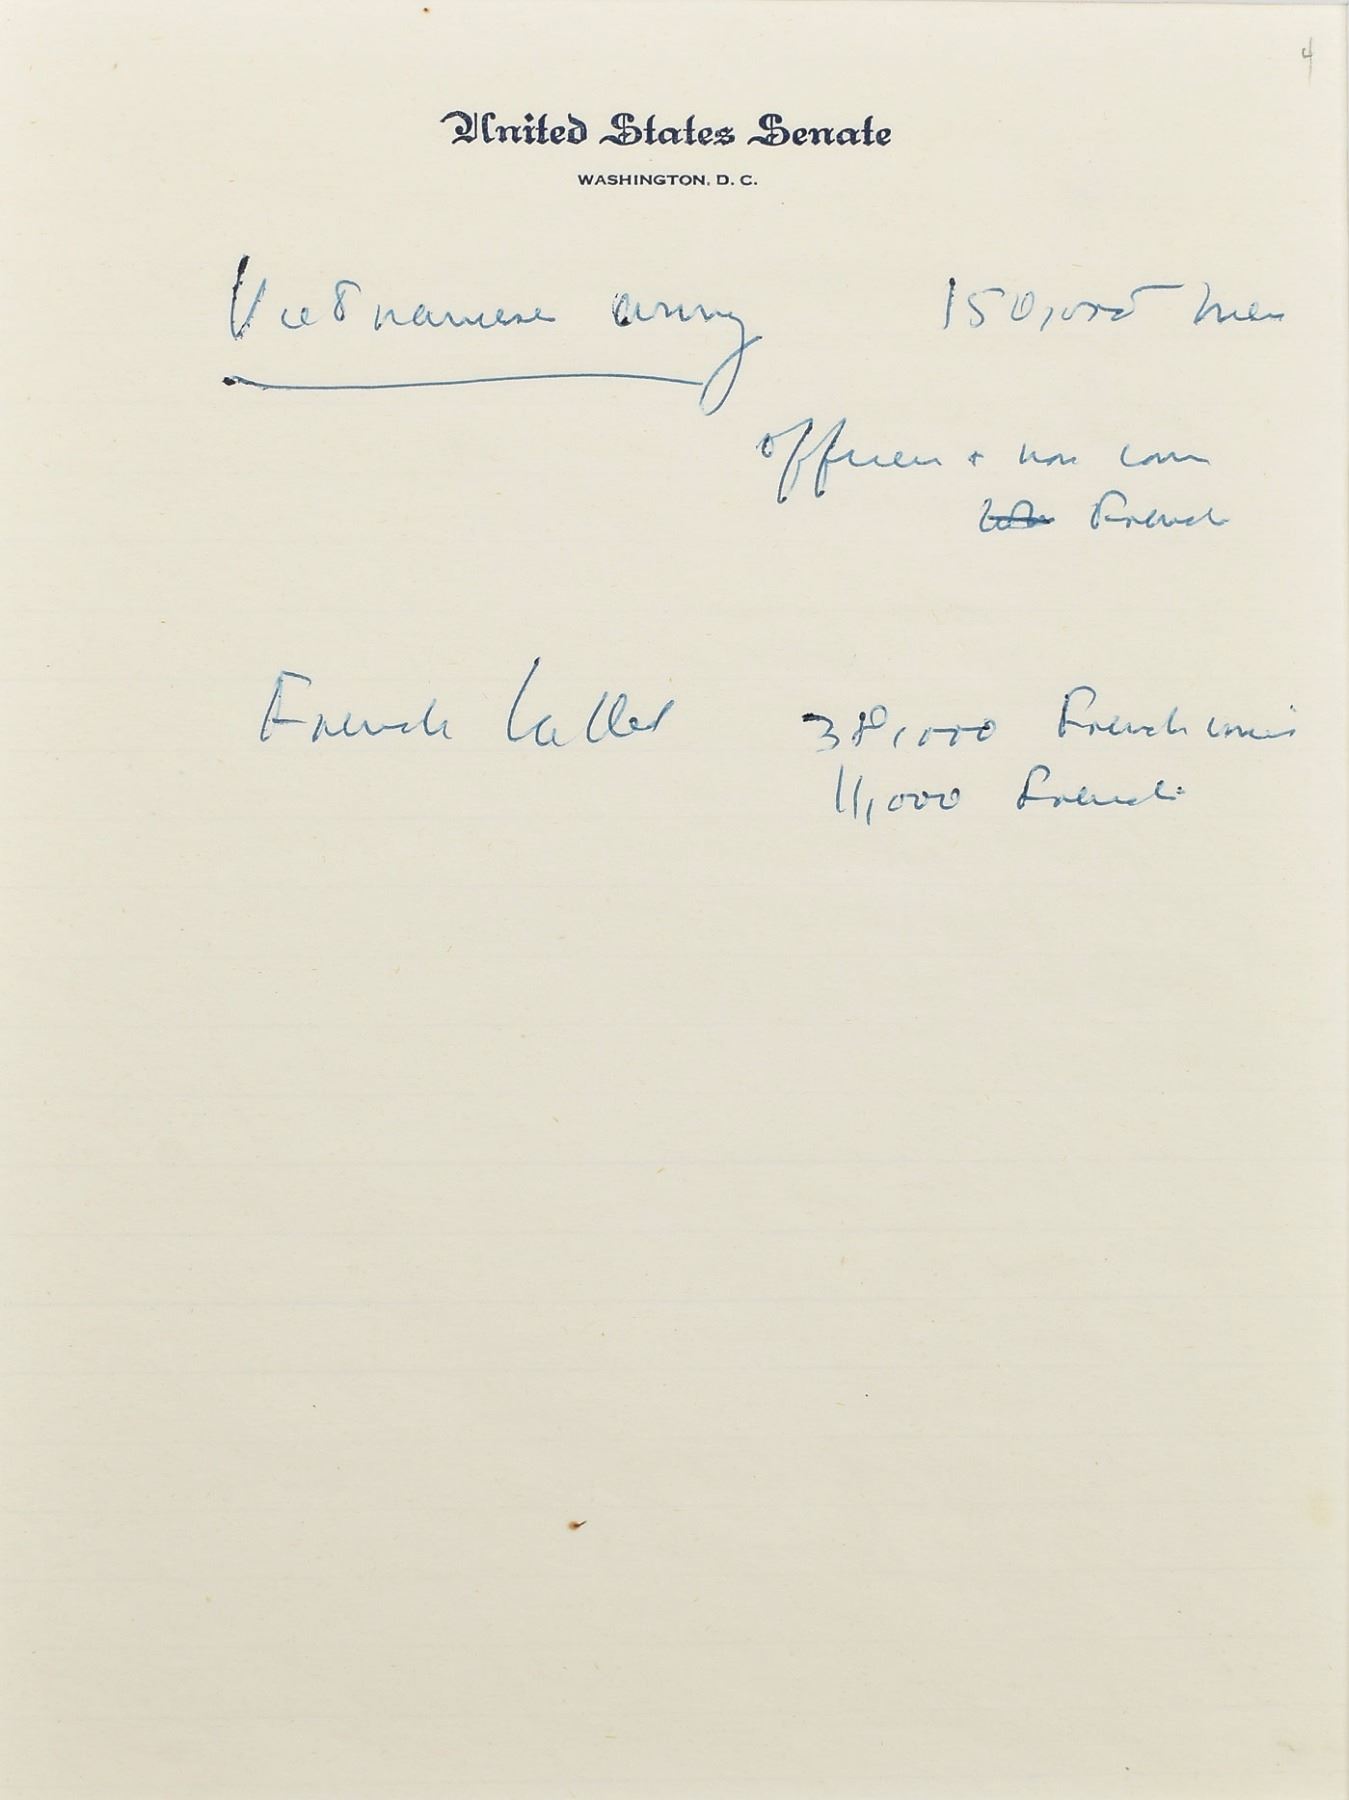 4
United States Senate
WASHINGTON, D. C.
Vietnamese army 150,000 men
officers + non com
French
French killed 38,000 French union
11,000 French